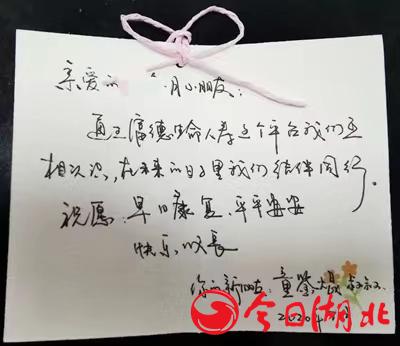 亲爱的 月小朋友:
通过富德生命人寿这个平台我们互
相认识,在未来的日子里我们结伴同行。
祝愿:早日康复、平平安安
快乐成长
你的新朋友:童 叔叔
2020
今日湖北